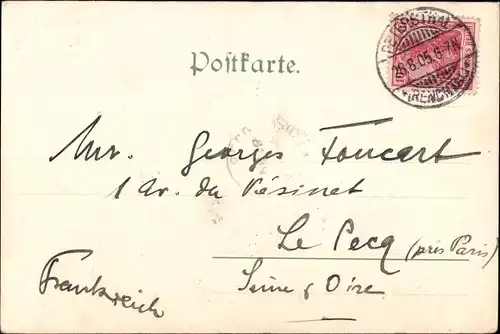 Postkarte.
28.8.05.6-7N.
Mr. Georges Foucart
1 Av. du Vésinet
Le Pecq (près Paris)
Seine & Oise
Frankreich